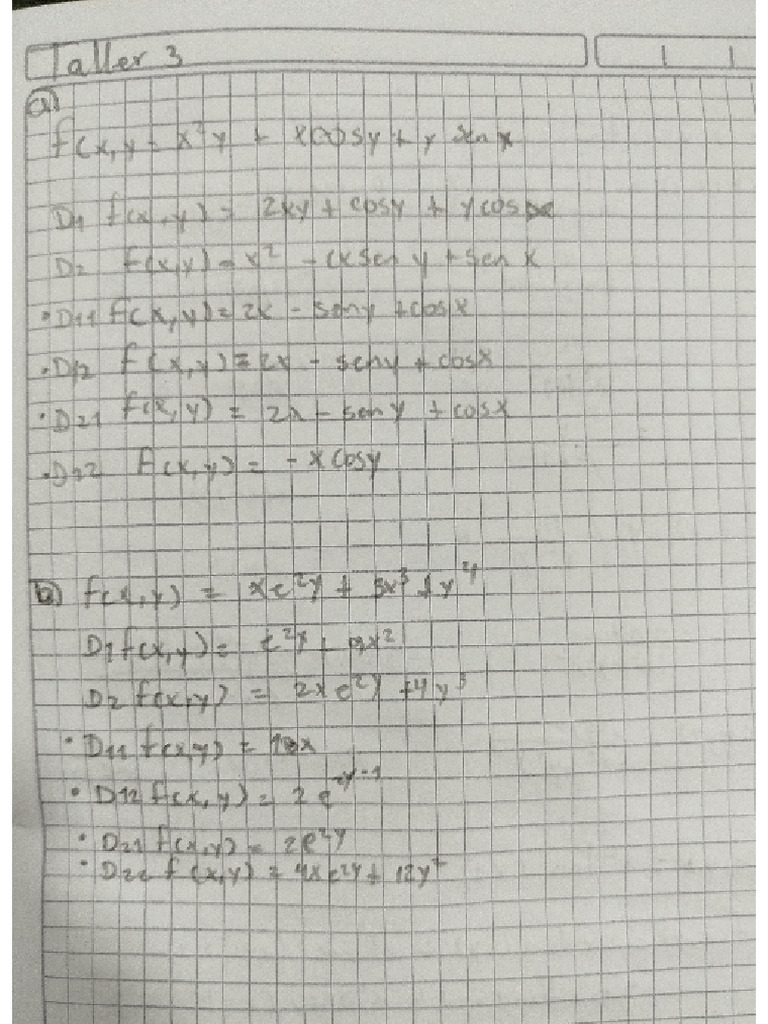 Taller 3
a)
f(x,y = x²y + xcosy + y sen x
D1 f(x,y) = 2xy + cosy + ycosx
D2 f(x,y) = x² - xsen y + sen x
• D11 f(x,y) = 2x - seny + cosx
• D12 f(x,y) = 2x - seny + cosx
• D21 f(x,y) = 2x - seny + cosx
• D22 f(x,y) = - x cosy
b) f(x,y) = xe²y + 3x³ + y⁴
D1 f(x,y) = e²y + 9x²
D2 f(x,y) = 2xe²y + 4y³
• D11 f(x,y) = 18x
• D12 f(x,y) = 2e
• D21 f(x,y) = 2e²y
• D22 f(x,y) = 4xe²y + 12y²